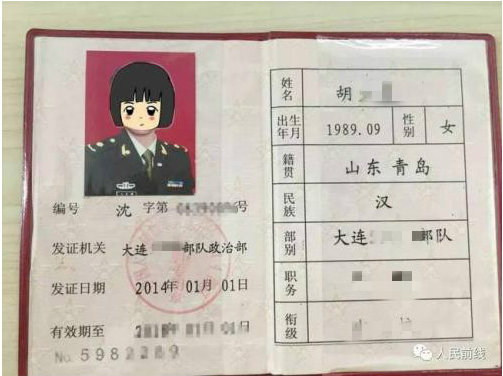 编号 沈 字第 号
发证机关 大连 部队政治部
发证日期 2014年01月01日
有效期至 01月01日
No 5982289
姓名 胡
出生年月 1989.09 性别 女
籍贯 山东青岛
民族 汉
部别 大连 部队
职务
衔级
人民前线